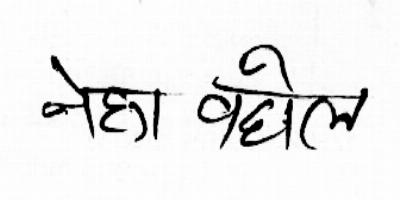 नेहा बघेल